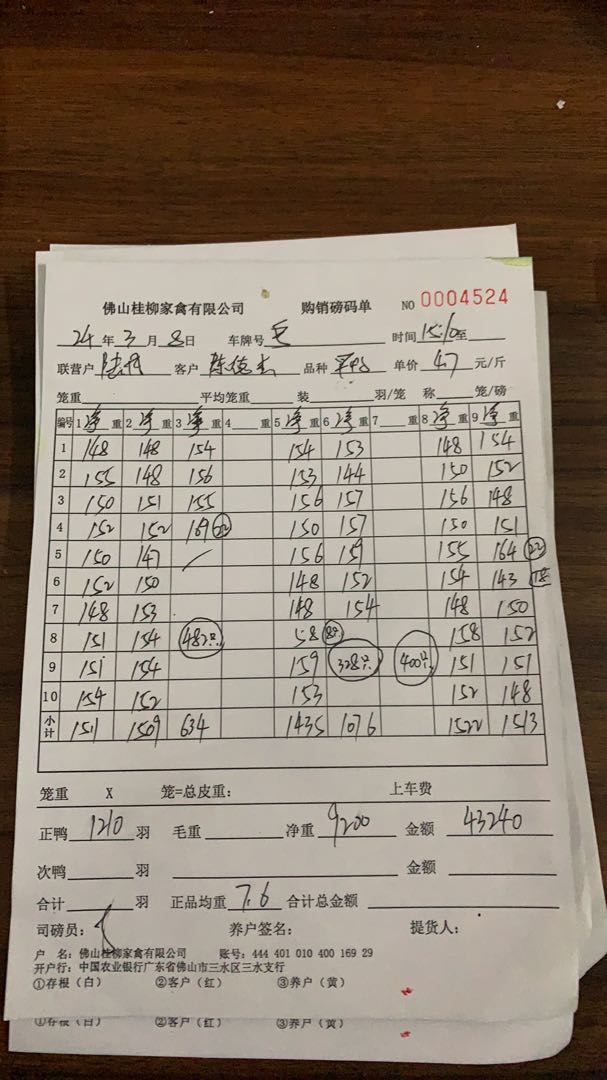 佛山桂柳家禽有限公司 购销磅码单 NO 0004524
24 年 3 月 8 日 车牌号 时间 15:10 至
联营户 客户 陈德 品种 单价 4.7 元/斤
笼重: 平均笼重: 装 羽/笼 称 笼/磅
编号 1 净 重 2 净 重 3 净 重 4 重 5 净 重 6 净 重 7 重 8 净 重 9 净 重
1 148 148 154 154 153 148 154
2 155 148 156 153 144 150 152
3 150 151 155 156 157 156 148
4 152 152 169 22 150 157 150 151
5 150 147 / 156 159 155 164 22
6 152 150 148 152 154 143 18
7 148 153 148 154 148 150
8 151 154 482只 58 8只 158 152
9 151 154 159 328只 400只 151 151
10 154 152 153 152 148
小计 1511 1509 634 1435 1076 1522 1513
笼重 X 笼=总皮重: 上车费
正鸭 1210 羽 毛重 净重 9200 金额 43240
次鸭 羽 金额
合计 羽 正品均重 7.6 合计总金额
司磅员: 养户签名: 提货人:
户 名: 佛山桂柳家禽有限公司 账号: 444 401 010 400 169 29
开户行: 中国农业银行广东省佛山市三水区三水支行
①存根(白) ②客户(红) ③养户(黄)
①存根(白) ②客户(红) ③养户(黄)